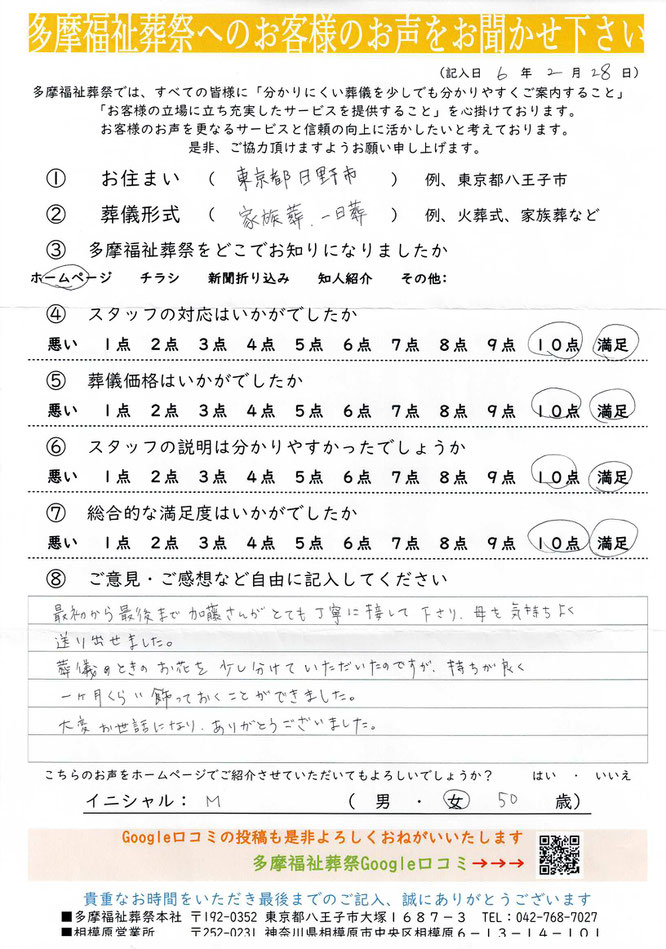 多摩福祉葬祭へのお客様のお声をお聞かせ下さい
(記入日 6 年 2 月 28 日)
多摩福祉葬祭では、すべての皆様に「分かりにくい葬儀を少しでも分かりやすくご案内すること」
「お客様の立場に立ち充実したサービスを提供すること」を心掛けております。
お客様のお声を更なるサービスと信頼の向上に活かしたいと考えております。
是非、ご協力頂けますようお願い申し上げます。
① お住まい ( 東京都日野市 ) 例、東京都八王子市
② 葬儀形式 ( 家族葬、一日葬 ) 例、火葬式、家族葬など
③ 多摩福祉葬祭をどこでお知りになりましたか
ホームページ チラシ 新聞折り込み 知人紹介 その他:
④ スタッフの対応はいかがでしたか
悪い 1点 2点 3点 4点 5点 6点 7点 8点 9点 10点 満足
⑤ 葬儀価格はいかがでしたか
悪い 1点 2点 3点 4点 5点 6点 7点 8点 9点 10点 満足
⑥ スタッフの説明は分かりやすかったでしょうか
悪い 1点 2点 3点 4点 5点 6点 7点 8点 9点 10点 満足
⑦ 総合的な満足度はいかがでしたか
悪い 1点 2点 3点 4点 5点 6点 7点 8点 9点 10点 満足
⑧ ご意見・ご感想など自由に記入してください
最初から最後まで加藤さんがとても丁寧に接して下さり、母も気持ちよく
送り出せました。
葬儀のときのお花を少し分けていただいたのですが、持ちが良く
一ヶ月くらい飾っておくことができました。
大変お世話になり、ありがとうございました。
こちらのお声をホームページでご紹介させていただいてもよろしいでしょうか? はい ・ いいえ
イニシャル: M ( 男 ・ 女 50 歳)
Google口コミの投稿も是非よろしくおねがいいたします
多摩福祉葬祭Google口コミ→→→
貴重なお時間をいただき最後までのご記入、誠にありがとうございます
■多摩福祉葬祭本社 〒192-0352 東京都八王子市大塚1687-3 TEL:042-768-7027
■相模原営業所 〒252-0231 神奈川県相模原市中央区相模原6-13-14-101